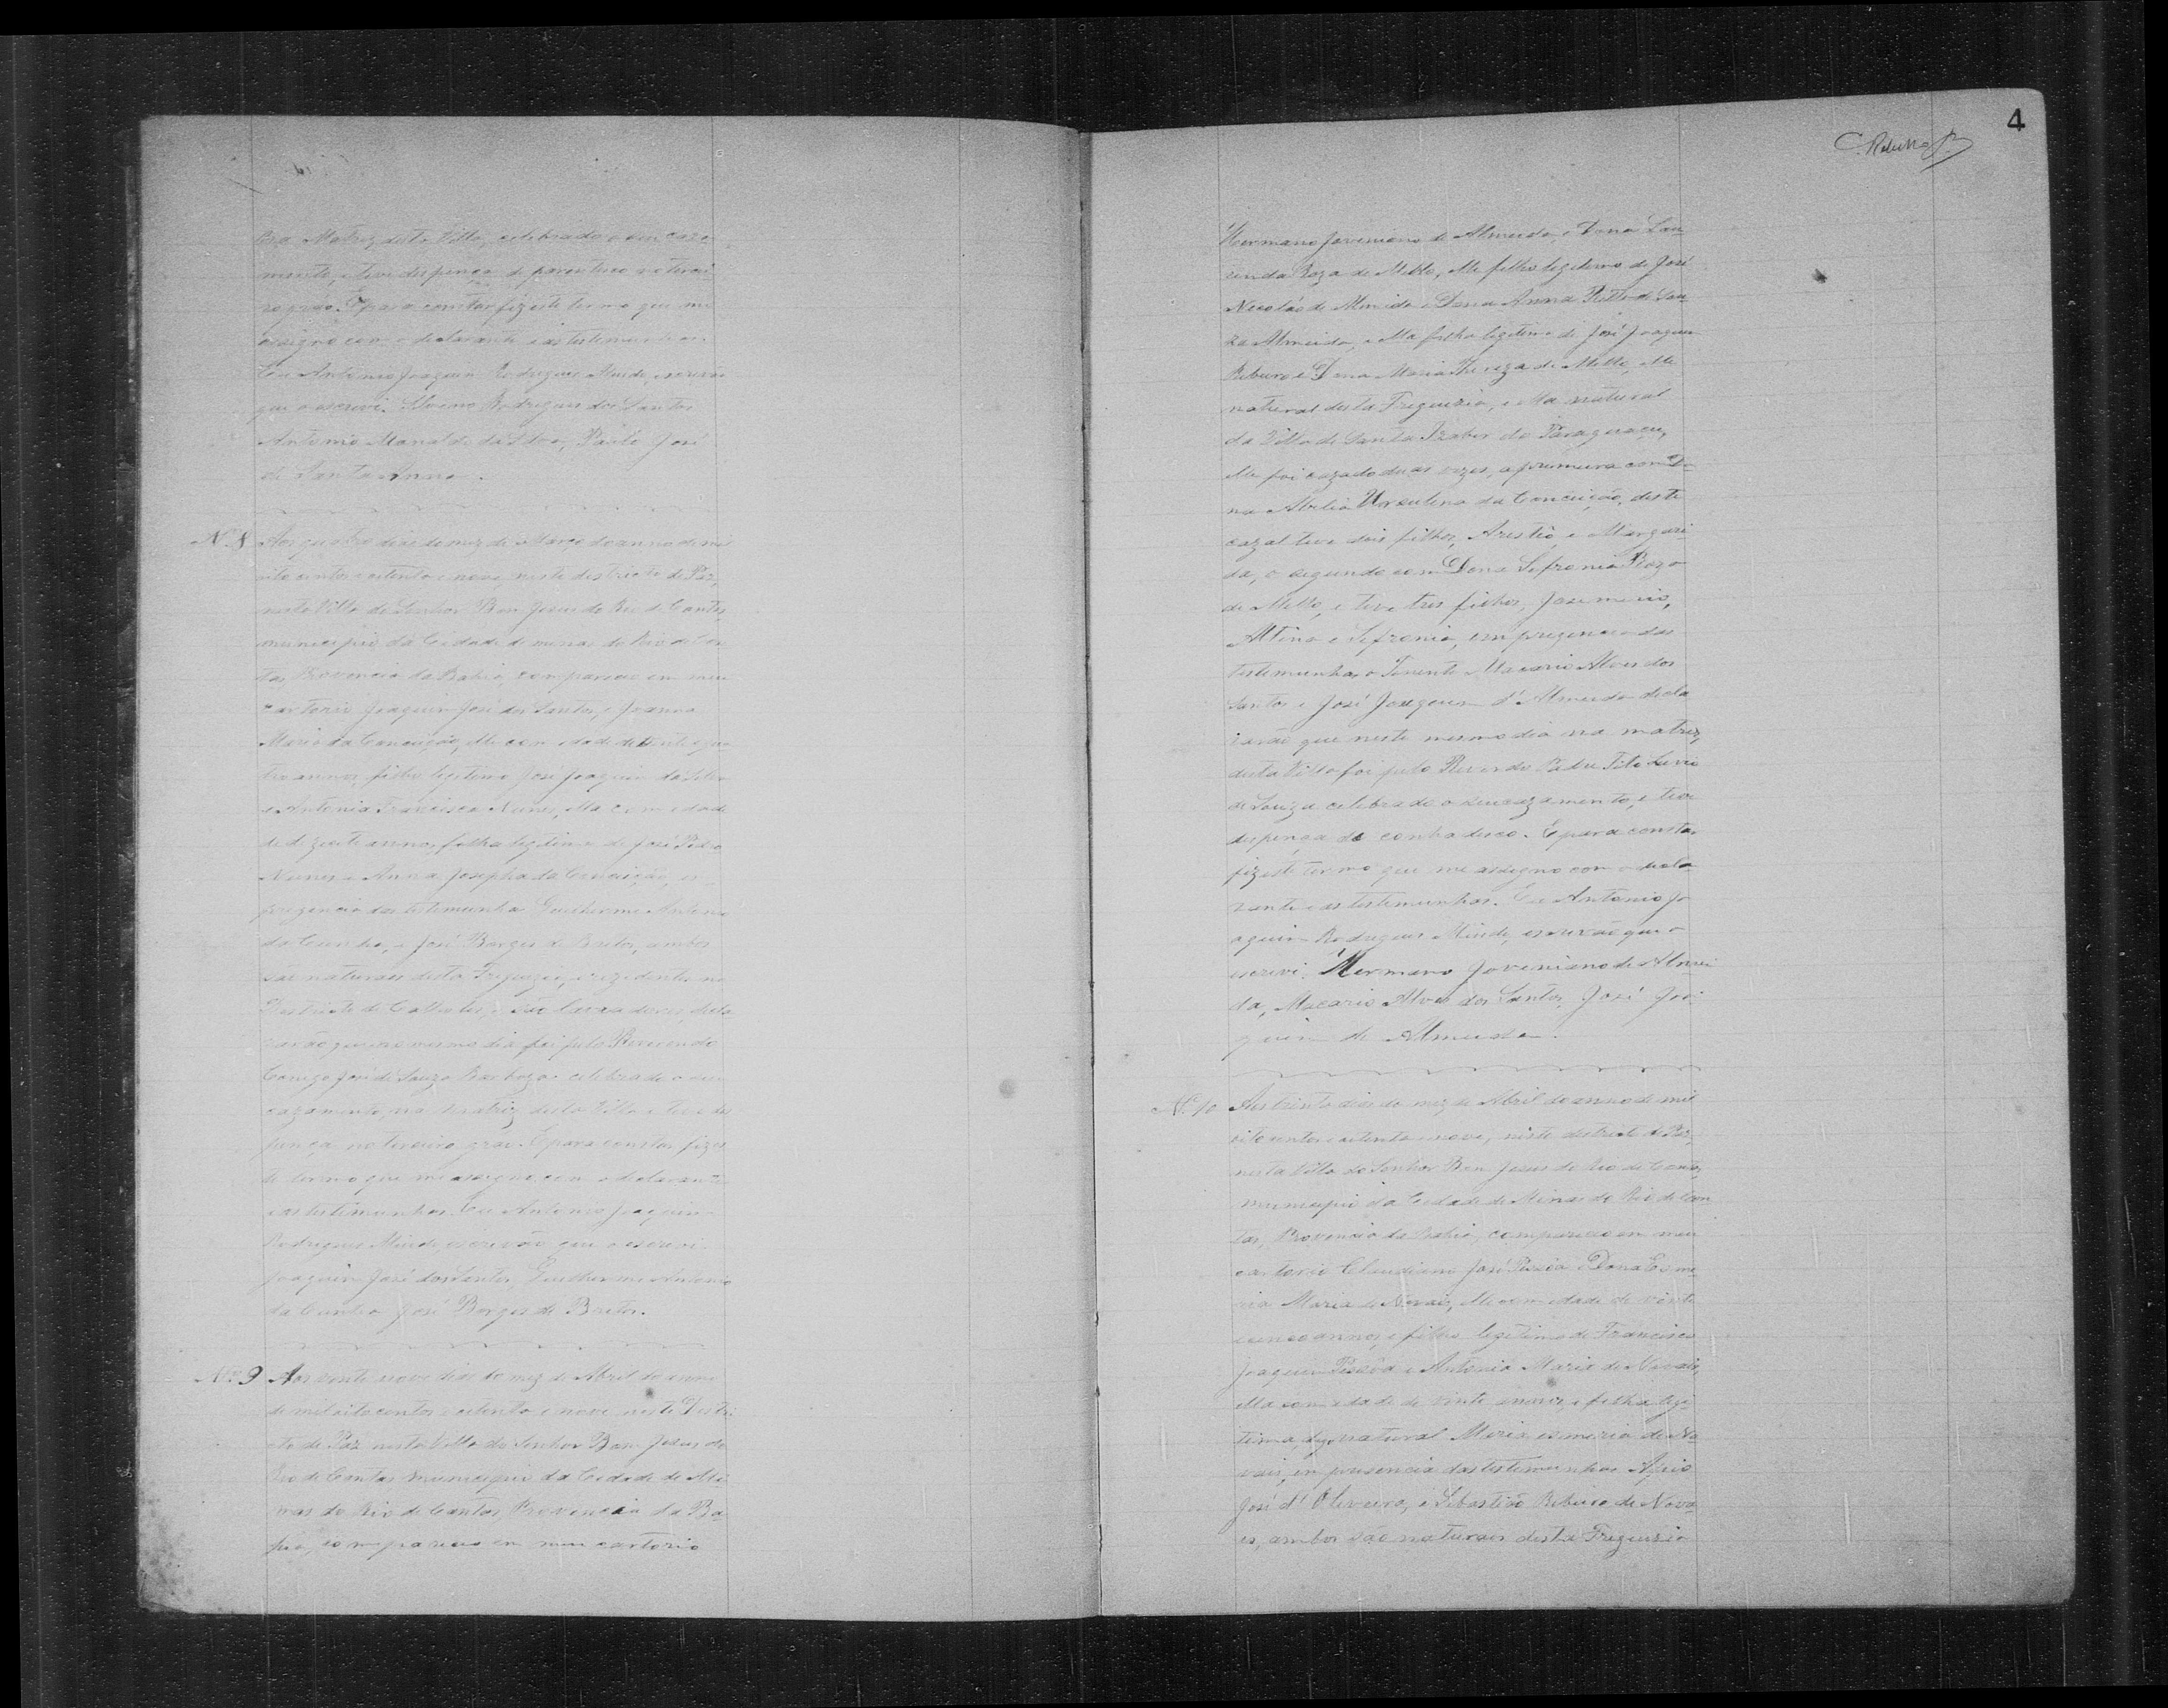 Matriz desta Villa, celebrado o seu caza-
mento, e teve despença de parentesco no tercei-
ro grao. E para constar fiz este termo que me
assigno com o declarante e as testemunhas
Eu Antonio Joaquim Rodrigues Minde, escrivão
que o escrevi. Rodrigues dos Santos
Antonio da Silva, Paulo José
de Santa Anna.
N. 8 Aos quatro dias do mez de Março do anno de mil
oito centos e oitenta e nove, neste districto de Paz,
nesta Villa do Senhor Bom Jesus do Rio de Contas,
municipio da Cidade de minas do Rio de Con
tas Provencia da Bahia, compareceo em meu
cartorio Joaquim José dos Santos, e Joanna
Maria da Conceição, elle com idade de vinte e qua
tro annos, filho legitimo José Joaquim da Silva
e Antonia Francisca Nunes, ella com idade
de dezesete annos, filha legitima de José Pedro
Nunes e Anna Josepha da Conceição, em
prezencia das testemunhas Guilherme Antonio
da Cunha, e José Borges de Brittos, ambos
são naturaes desta Freguezia, e rezidentes no
Districto de e são lavradores, decla
rarão que no mesmo dia foi pelo Reverendo
Conego José de Souza Barboza celebrado o seu
cazamento na matriz desta Villa e teve des
pença no terceiro grao. E para constar fiz es
te termo que me assigno com o declarante
e as testemunhas. Eu Antonio Joaquim
Rodrigues Minde, escrivão que o escrevi
Joaquim José dos Santos, Guilherme Antonio
da Cunha José Borges de Brittos.
N. 9 Aos vinte e nove dias do mez de Abril do anno
de mil oito centos e oitenta e nove neste Distri
cto de Paz nesta Villa do Senhor Bom Jesus do
Rio de Contas municipio da Cidade de Mi
nas do Rio de Contas, Provencia da Ba
hia, compareceo em meu cartorio
4
Hermano Joveniano de Almeida, e Dona Lau
rinda Roza de Mello, elle filho legitimo de José
Nicoláo de Almeida e Dona Anna de Sou
za Almeida, e ella filha legitima de José Joaquim
Ribeiro e Dona Maria Thereza de Mello, elle
natural desta Freguezia, e ella natural
da Villa de Santa Izabel do Paraguaçu,
elle foi cazado duas vezes, a primeira com Do
na Abilia Urculina da Conceição, deste
cazal teve dois filhos, e Margari
da, o segundo com Dona Sofronia Roza
de Mello, e teve tres filhos,
Altino e Sofronia, em prezencia das
testemunhas o Tenente Macario Alves dos
Santos e José Joaquim d'Almeida decla
rarão que neste mesmo dia na matriz
desta Villa foi pelo Reverendo Padre Tito Livio
de Souza celebrado o seu cazamento, e teve
despença de conhadesco. E para constar
fiz este termo que me assigno com o decla
rante e as testemunhas. Eu Antonio Jo
aquim Rodrigues Minde, escrivão que o
escrevi. Hermano Joveniano de Almei
da, Macario Alves dos Santos, José Joa
quim de Almeida.
N. 10 Aos trinta dias do mez de Abril do anno de mil
oito centos e oitenta e nove, neste districto de Paz,
nesta Villa do Senhor Bom Jesus do Rio de Contas,
municipio da Cidade de Minas do Rio de Con
tas, Provencia da Bahia, compareceo em meu
cartorio Claudiano José Pessôa e Dona Esme
ria Maria de Novais, elle com idade de vinte
e cinco annos, e filho legitimo de Francisco
Joaquim Pessôa e Antonia Maria de Novais,
ella com idade de vinte annos, e filha legi
tima, digo natural Maria esmeria de No
vais, em presencia das testemunhas
José d'Oliveira, e Sebastião Ribeiro de Nova
es, ambos são naturaes desta Freguezia